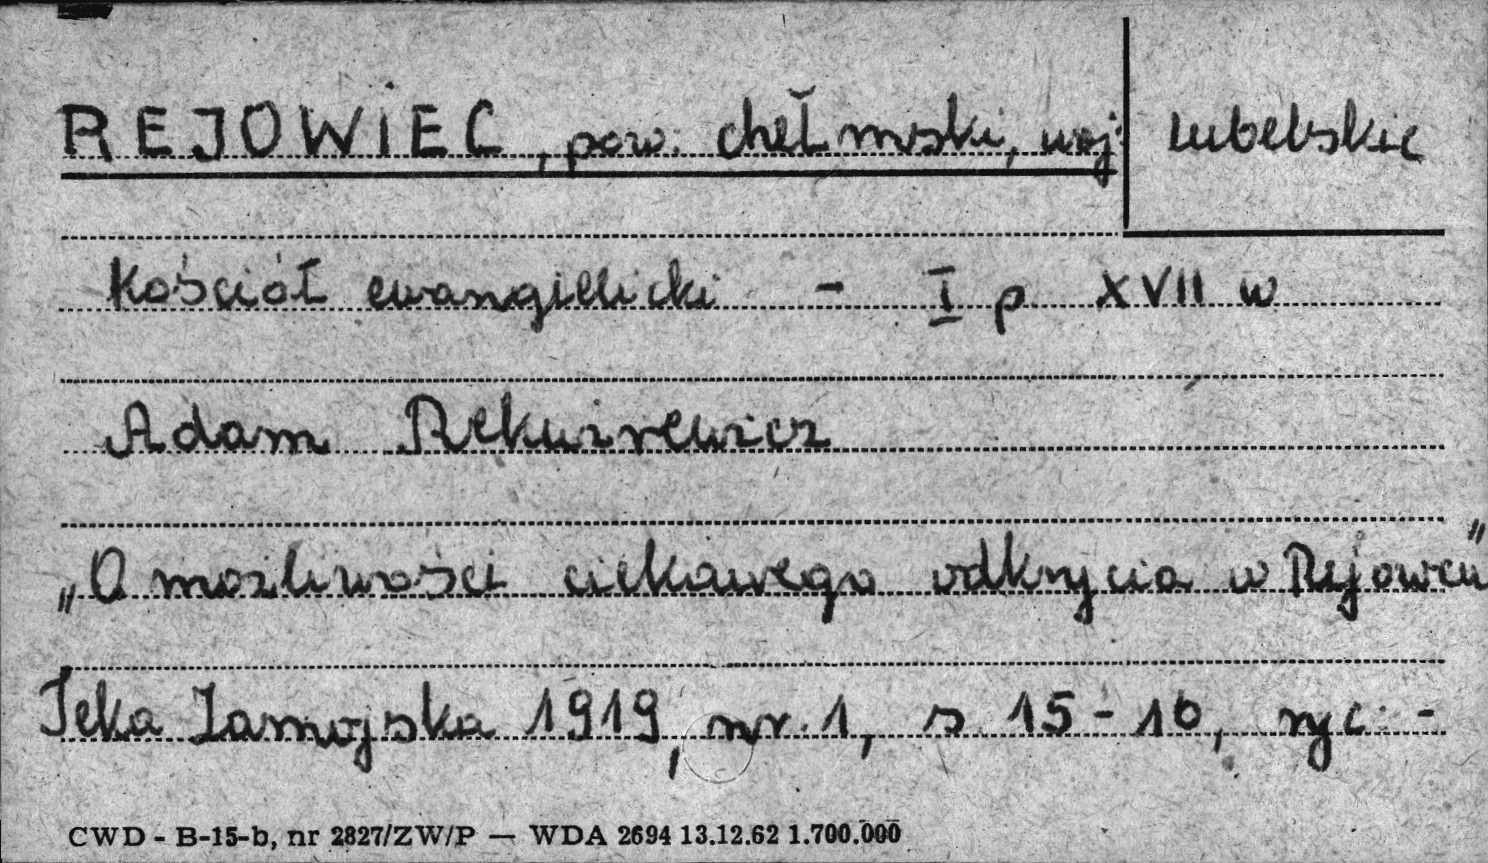 REJOWIEC, pow. chełmski, woj. lubelskie
Kościół ewangielicki - I p XVII w
Adam Rekwirewicz
„O możliwości ciekawego odkrycia w Rejowcu"
Teka Zamojska 1919, nr. 1, s. 15-16, ryc. -
CWD - B-15-b, nr 2827/ZW/P — WDA 2694 13.12.62 1.700.000